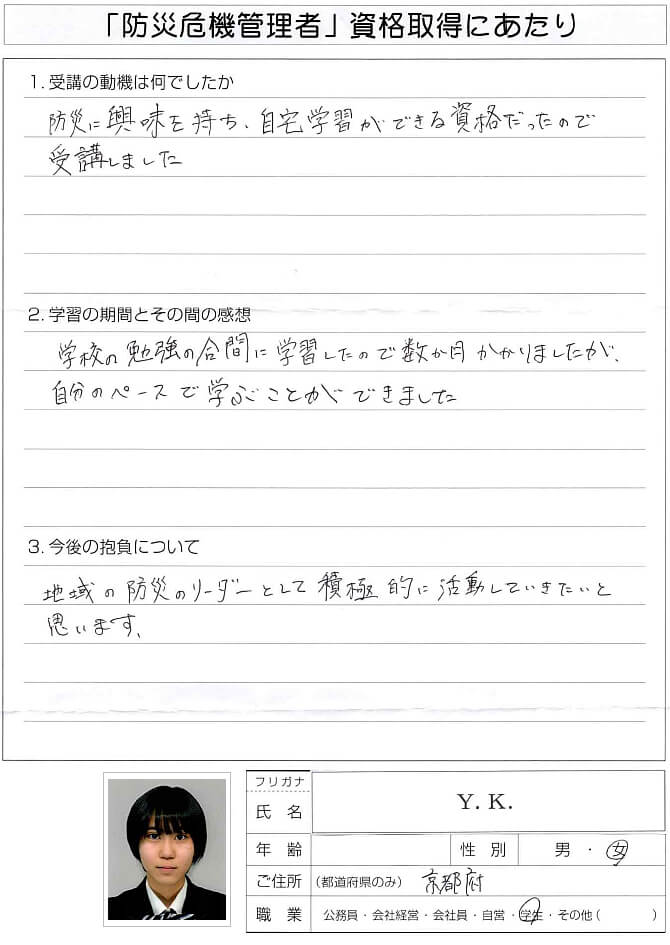 「防災危機管理者」資格取得にあたり
1. 受講の動機は何でしたか
防災に興味を持ち、自宅学習ができる資格だったので
受講しました
2. 学習の期間とその間の感想
学校の勉強の合間に学習したので数か月かかりましたが、
自分のペースで学ぶことができました
3. 今後の抱負について
地域の防災のリーダーとして積極的に活動していきたいと
思います。
フリガナ
氏名 Y. K.
年齢 性別 男・女
ご住所 (都道府県のみ) 京都府
職業 公務員・会社経営・会社員・自営・学生・その他( )